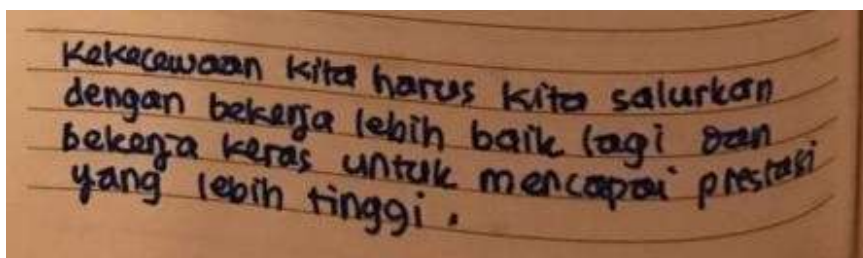 Kekecewaan kita harus kita salurkan
dengan bekerja lebih baik lagi dan
bekerja keras untuk mencapai prestasi
yang lebih tinggi.